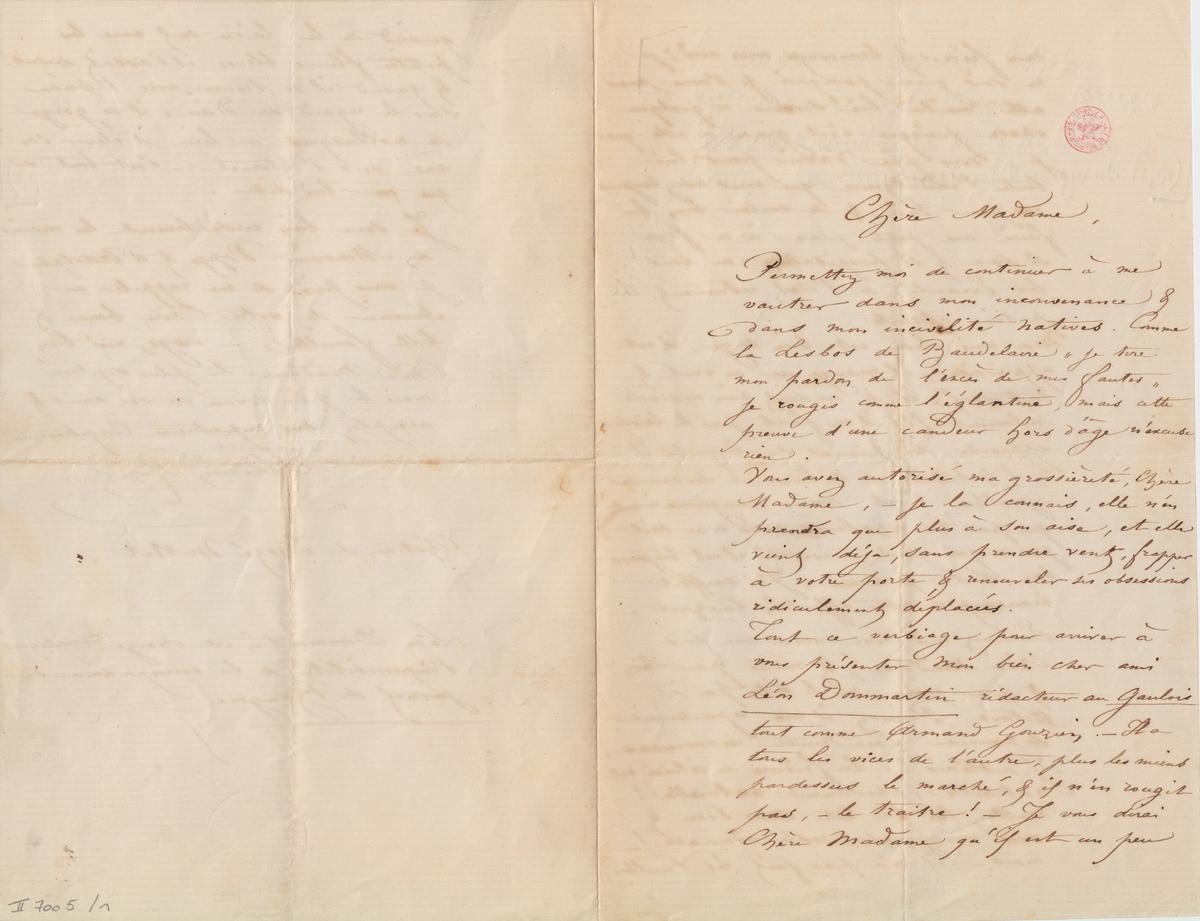 Chère Madame,
Permettez moi de continuer à me
vautrer dans mon inconvenance &
dans mon incivilité natives. Comme
la Lesbos de Baudelaire „ je tire
mon pardon de l'excès de mes fautes „
je rougis comme l'églantine, mais cette
preuve d'une candeur hors d'âge n'excuse
rien.
Vous avez autorisé ma grossièreté, Chère
Madame, – je la connais, elle n'en
prendra que plus à son aise, et elle
vient déja, sans prendre vent, frapper
à votre porte & renouveler ses obsessions
ridiculement déplacées.
Tout ce verbiage pour arriver à
vous présenter mon bien cher ami
Léon Dommartin rédacteur au Gaulois
tout comme Armand Gouzien. – Il a
tous les vices de l'autre, plus les miens
pardessus le marché, & il n'en rougit
pas, – le traitre ! – Je vous dirai
Chère Madame qu'il est un peu
II 7005 /1